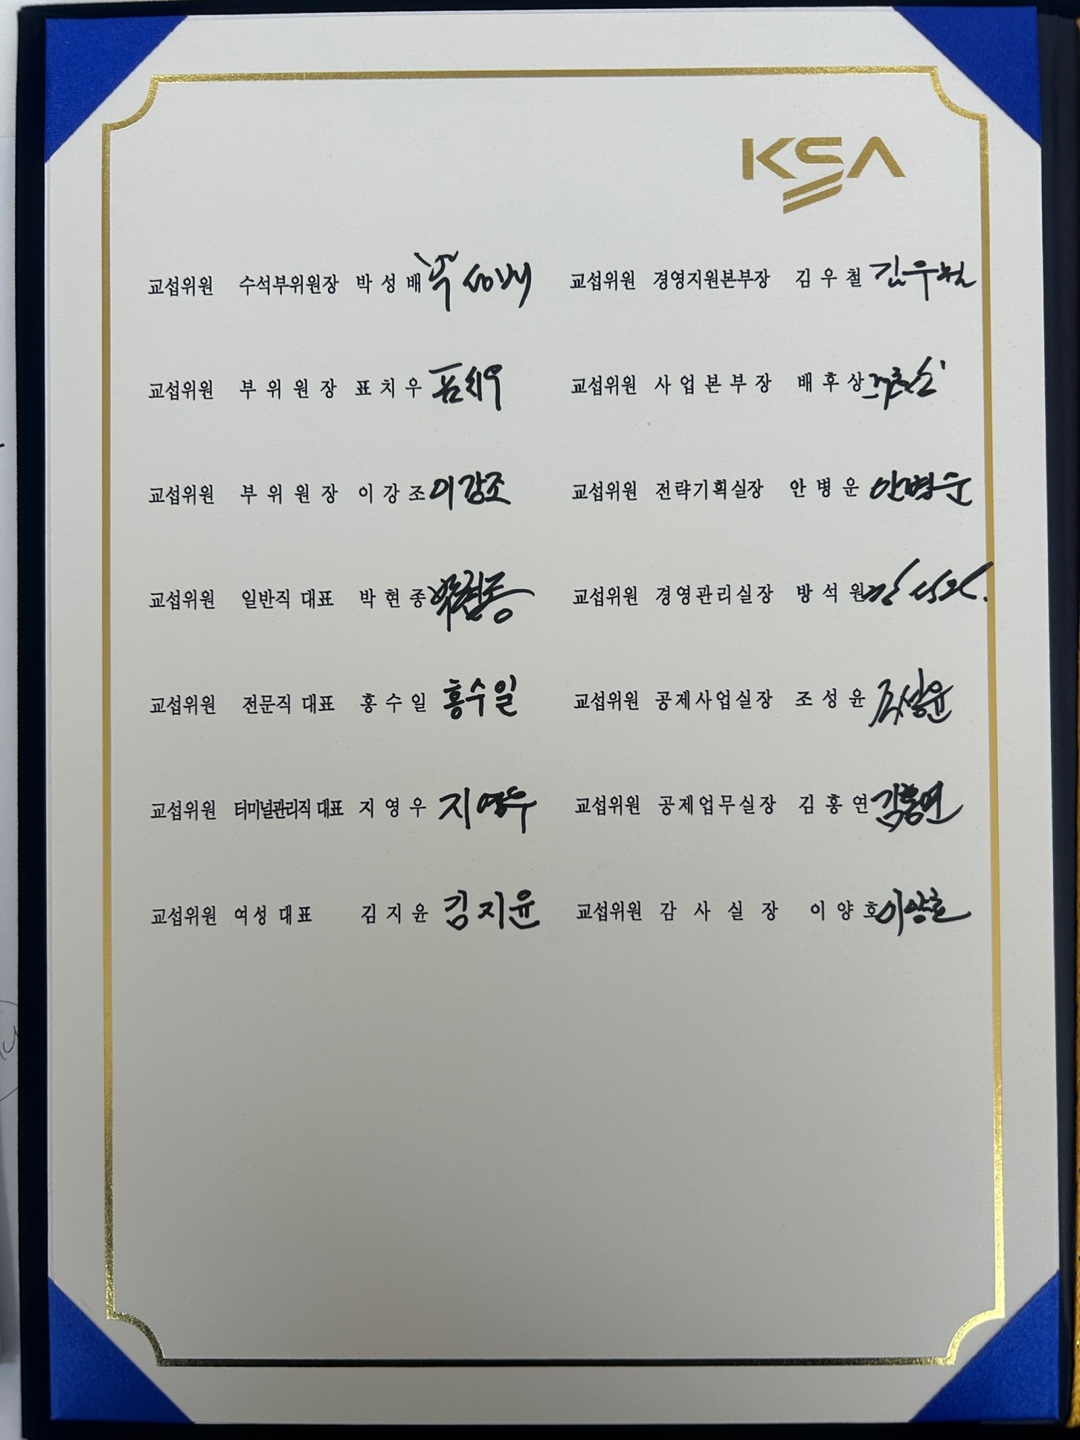 KSA
교섭위원 수석부위원장 박성배 박성배 교섭위원 경영지원본부장 김우철 김우철
교섭위원 부위원장 표치우 표치우 교섭위원 사업본부장 배후상
교섭위원 부위원장 이강조 이강조 교섭위원 전략기획실장 안병운 안병운
교섭위원 일반직 대표 박현종 박현종 교섭위원 경영관리실장 방석원
교섭위원 전문직 대표 홍수일 홍수일 교섭위원 공제사업실장 조성윤 조성윤
교섭위원 터미널관리직 대표 지영우 지영우 교섭위원 공제업무실장 김홍연 김홍연
교섭위원 여성 대표 김지윤 김지윤 교섭위원 감사실장 이양호 이양호